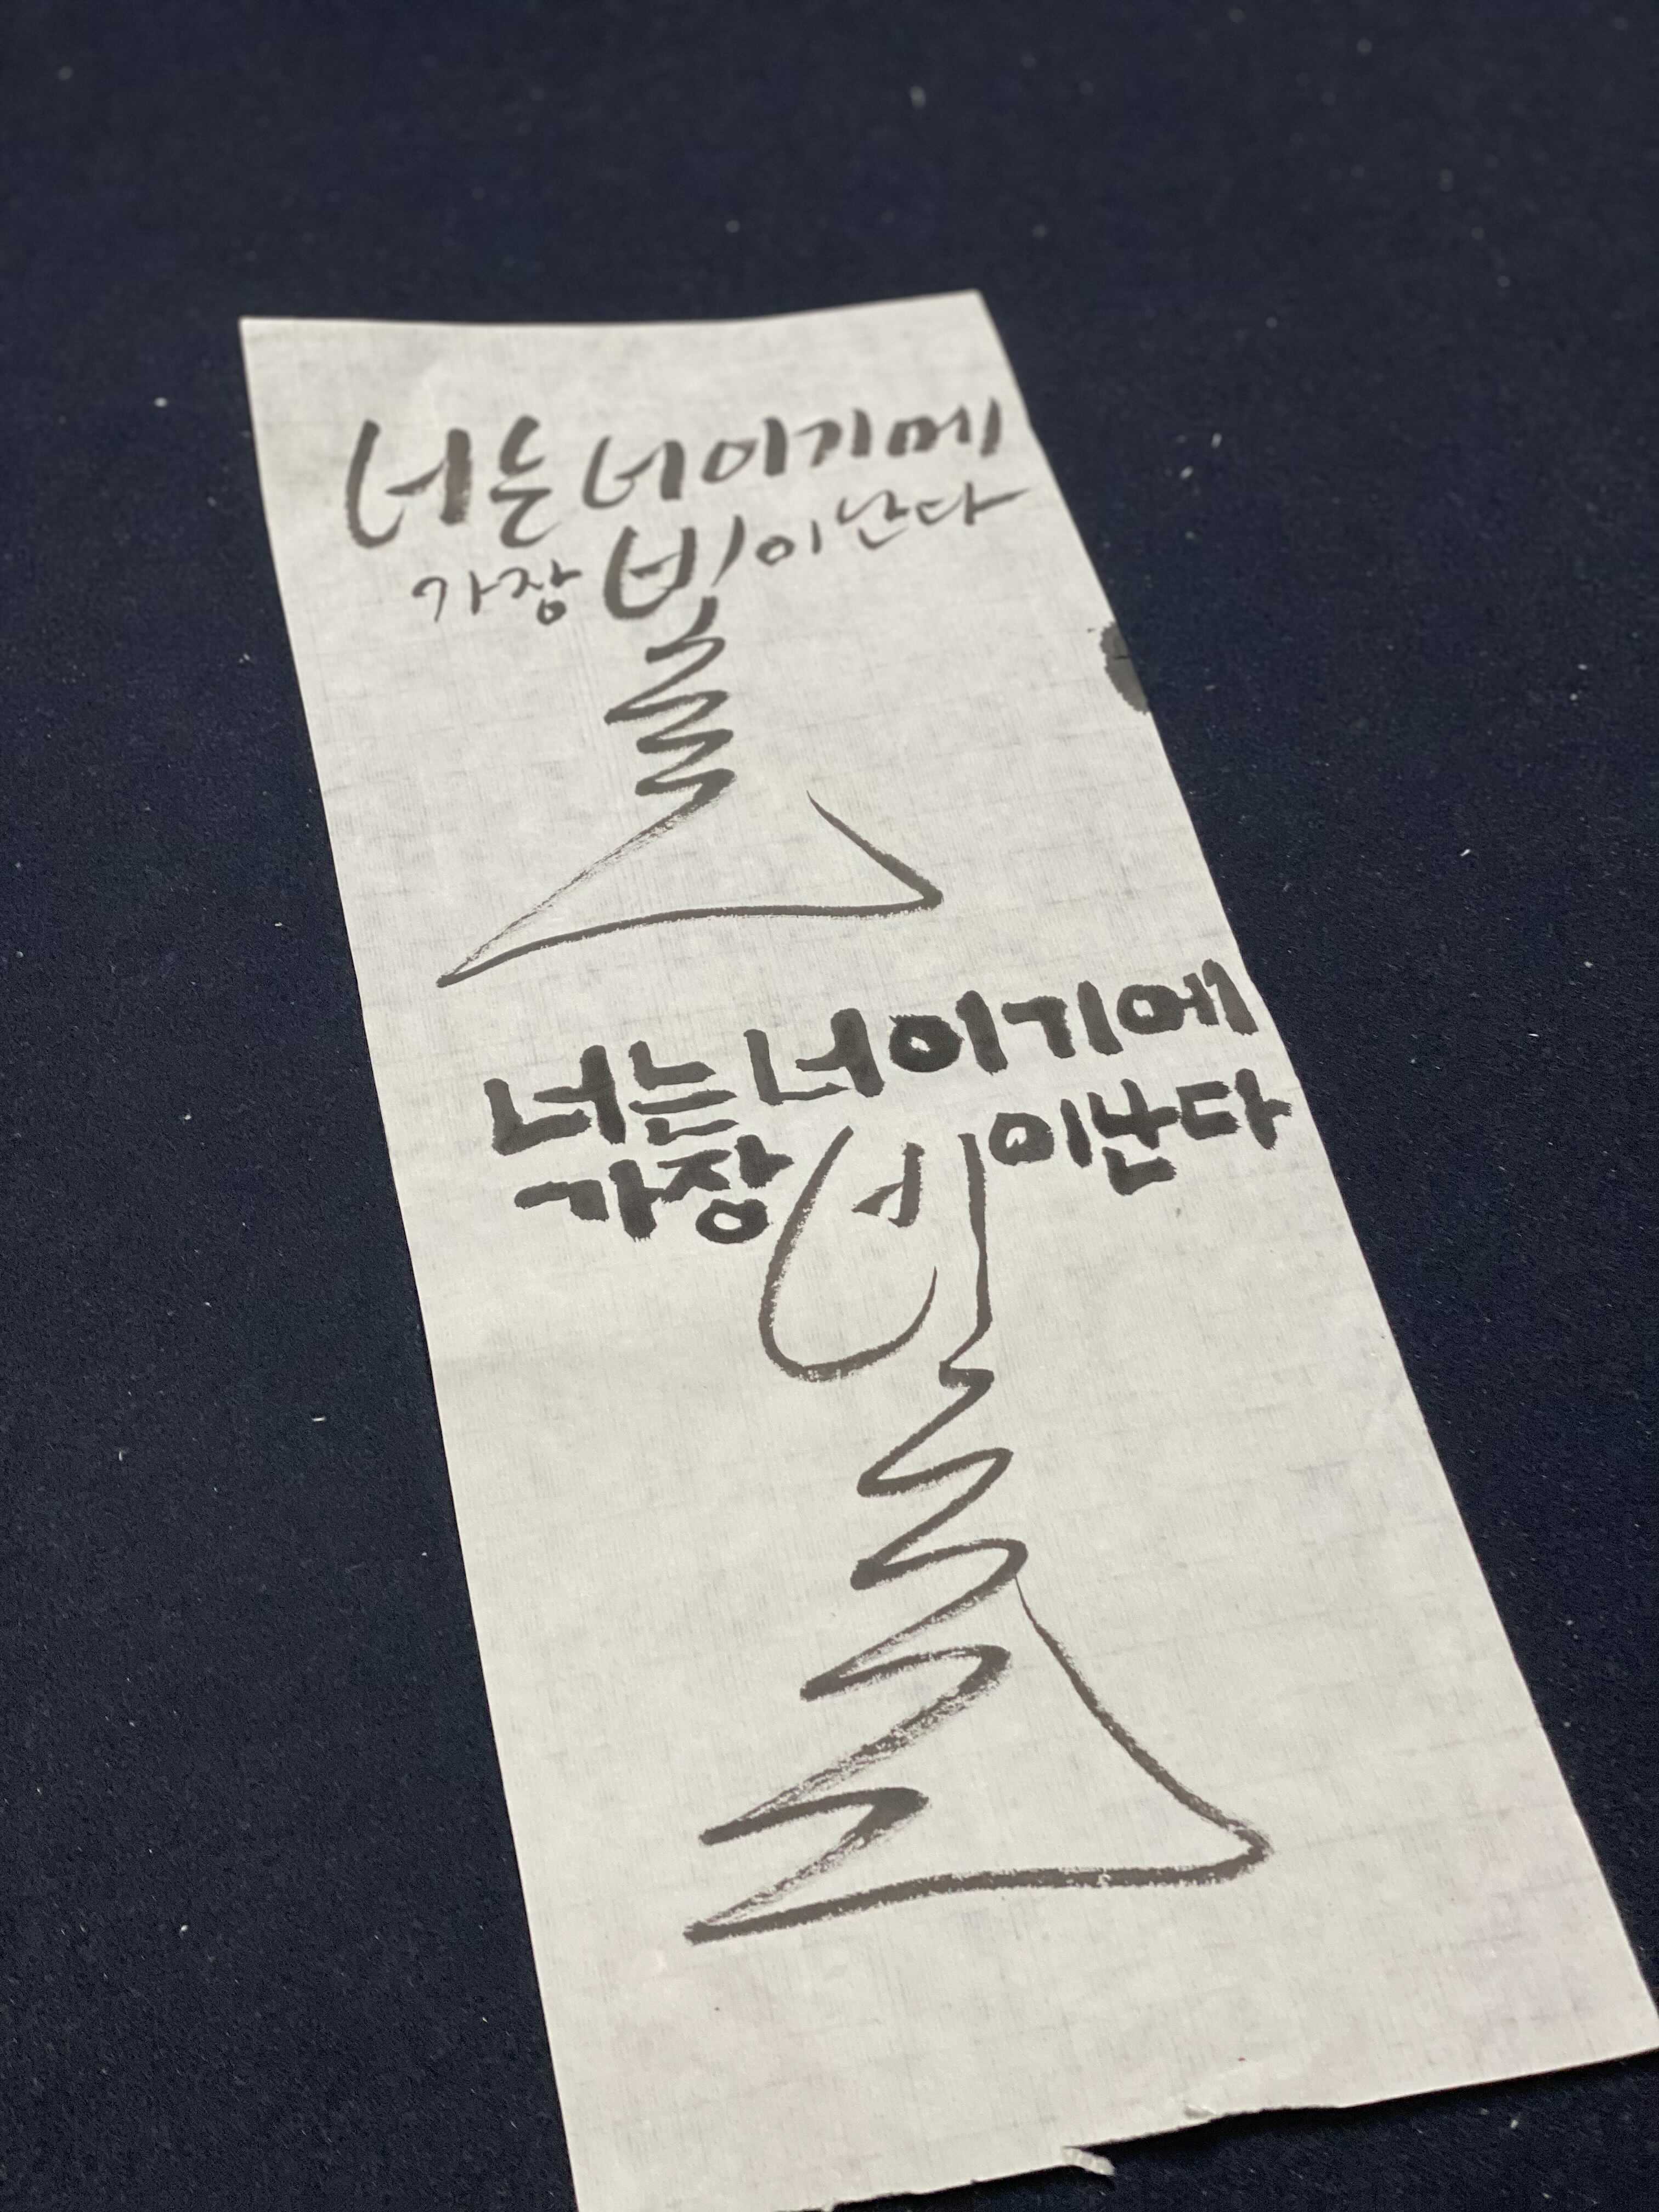 너는 너이기에
가장 빛이난다
너는 너이기에
가장 빛이난다